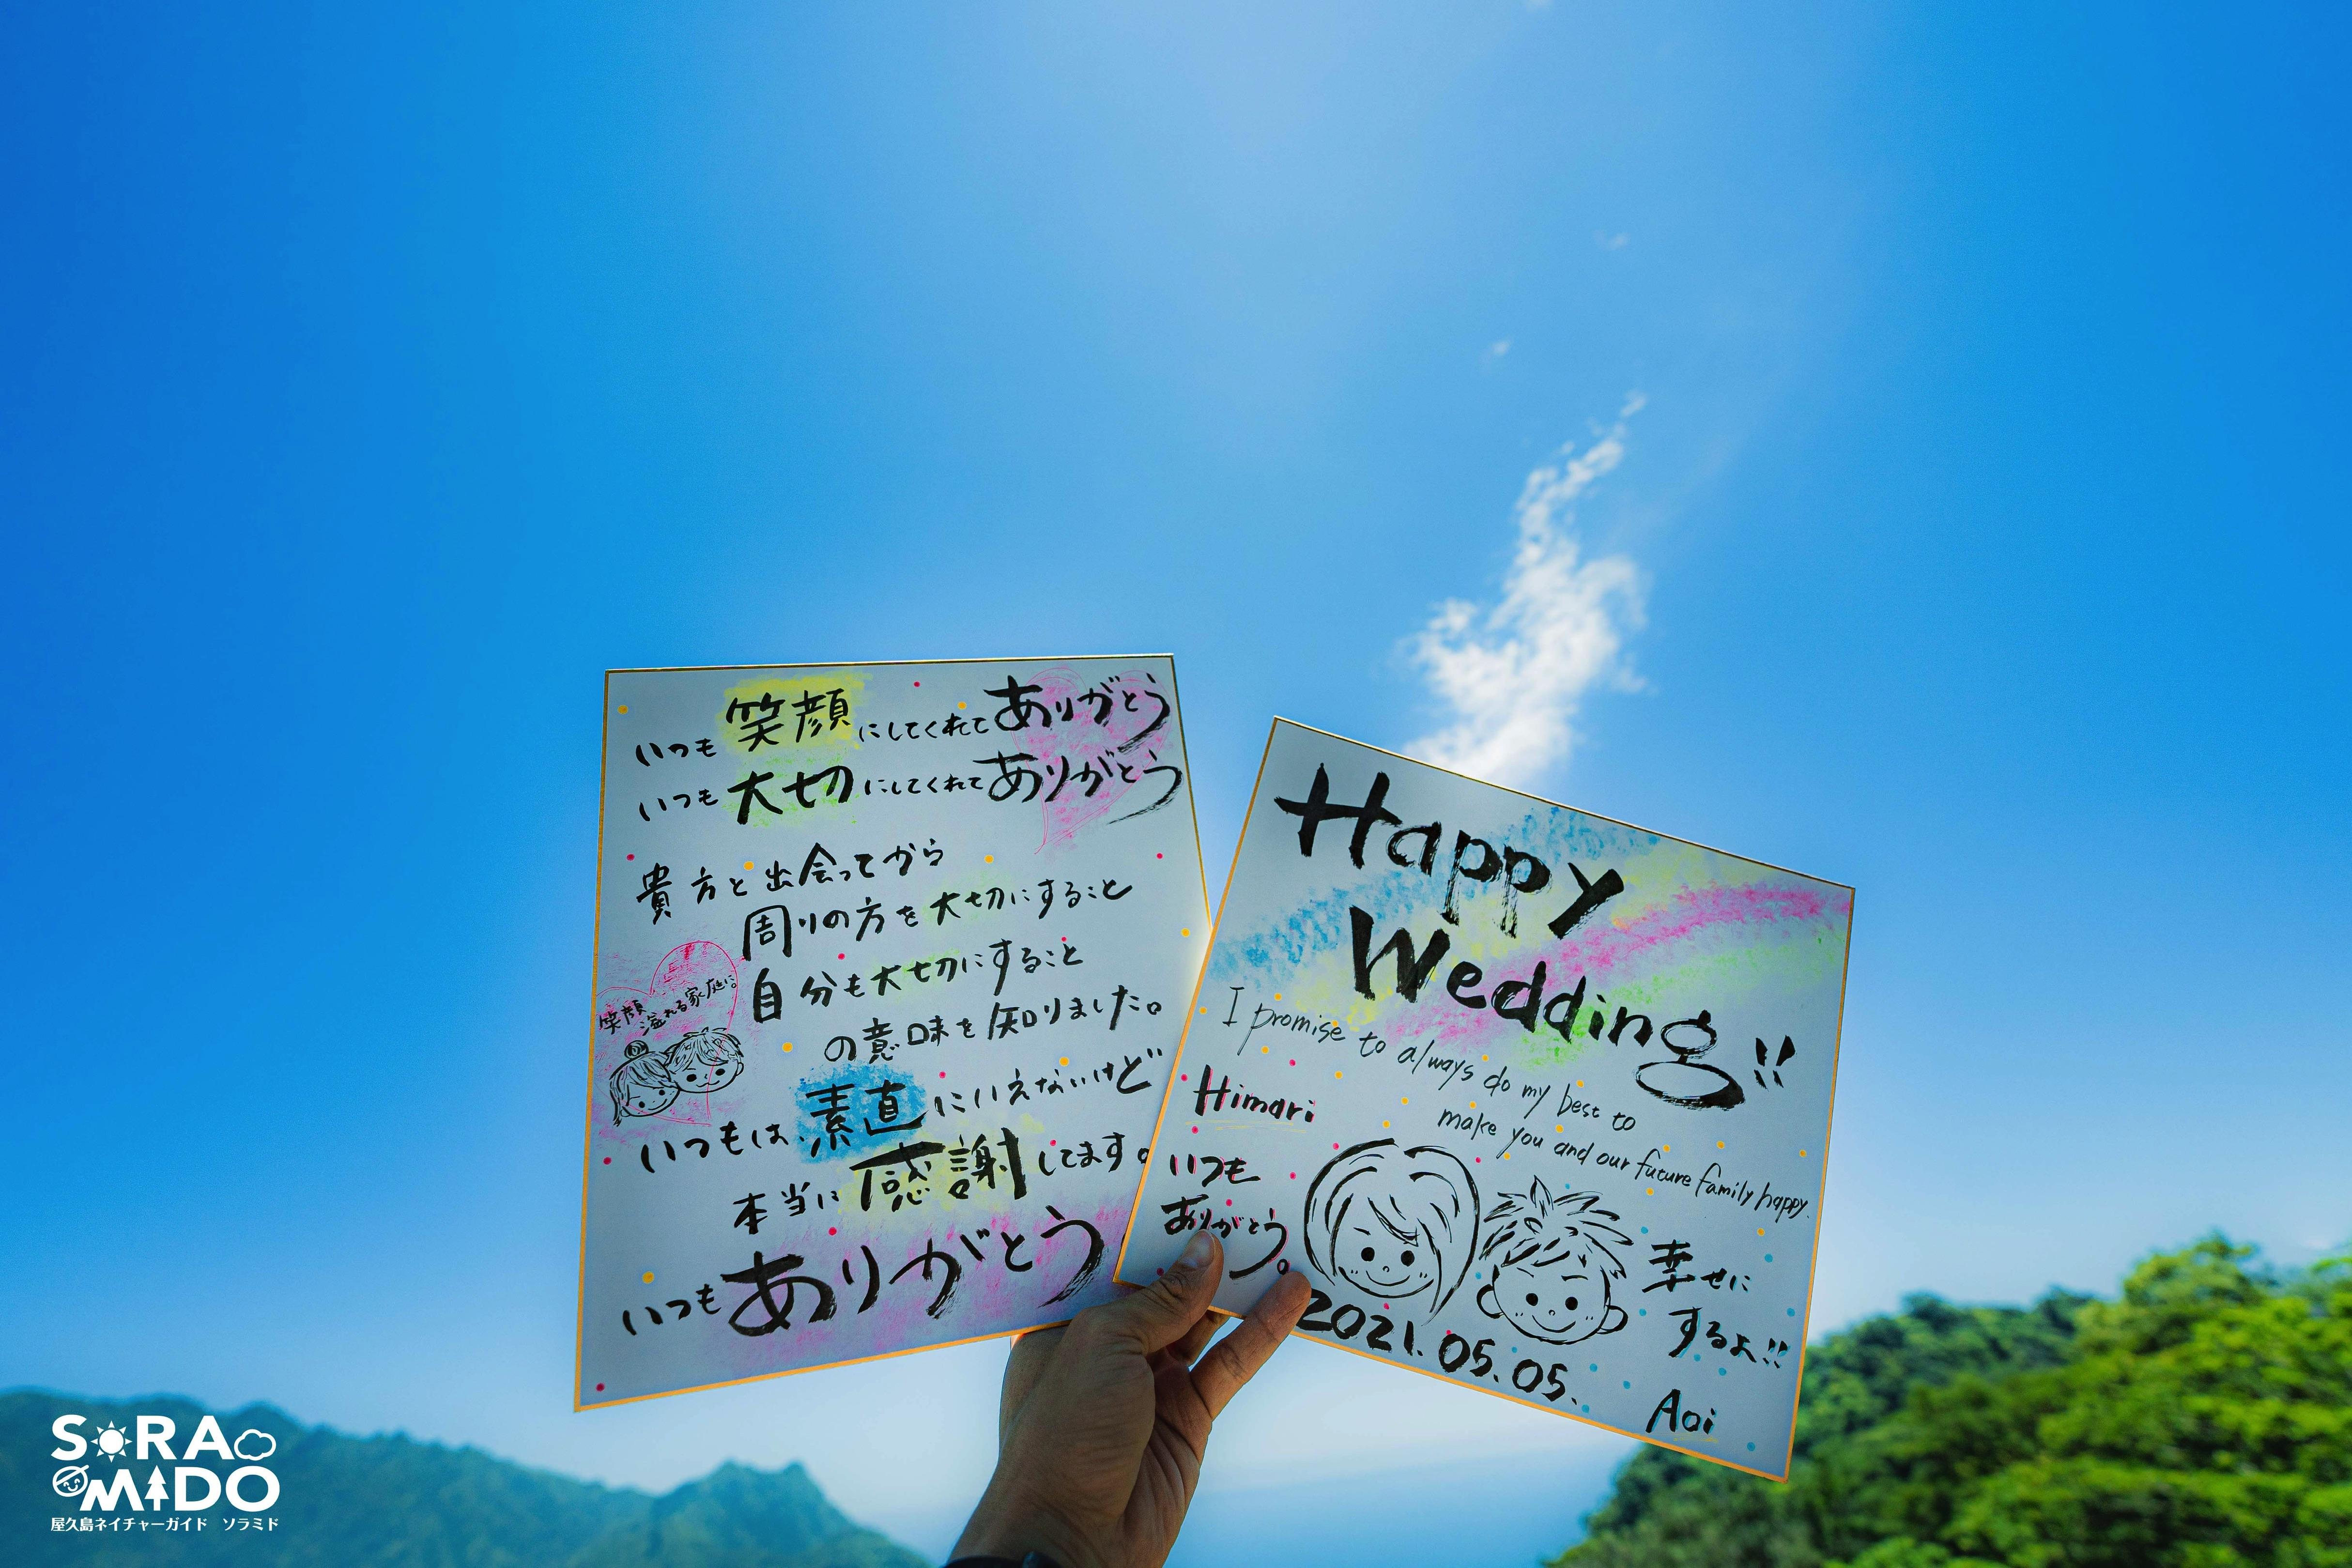 いつも笑顔にしてくれてありがとう
いつも大切にしてくれてありがとう
貴方と出会ってから
周りの方を大切にすること
自分も大切にすること
の意味を知りました。
笑顔
溢れる家庭に。
いつもは素直にいえないけど
本当に感謝してます。
いつもありがとう
Happy
Wedding!!
I promise to always do my best to
make you and our future family happy.
Himari
いつも
ありがとう。
幸せに
するよ!!
2021.05.05.
Aoi
SORA
MIDO
屋久島ネイチャーガイド ソラミド